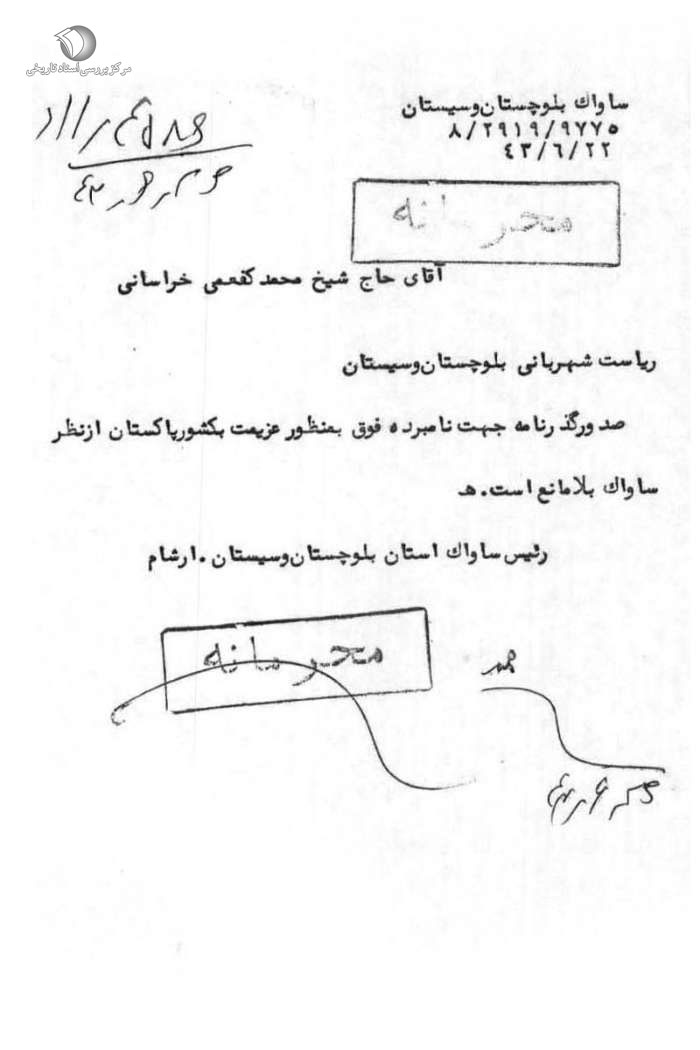 مرکز بررسی اسناد تاریخی
ساواك بلوچستان وسیستان
۸/۲۹۱۹/۹۷۷۵
٤۳/٦/۲۲
محرمانه
آقای حاج شیخ محمد کفعمی خراسانی
ریاست شهربانی بلوچستان وسیستان
صد ورگذ رنامه جهت نامبرده فوق بمنظور عزیمت بکشورپاکستان ازنظر
ساواك بلامانع است. هـ
رئیس ساواك استان بلوچستان وسیستان . ارشام
محرمانه